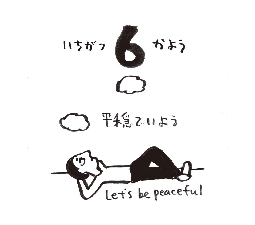 いちがつ 6 かよう
平穏でいよう
Let's be peaceful